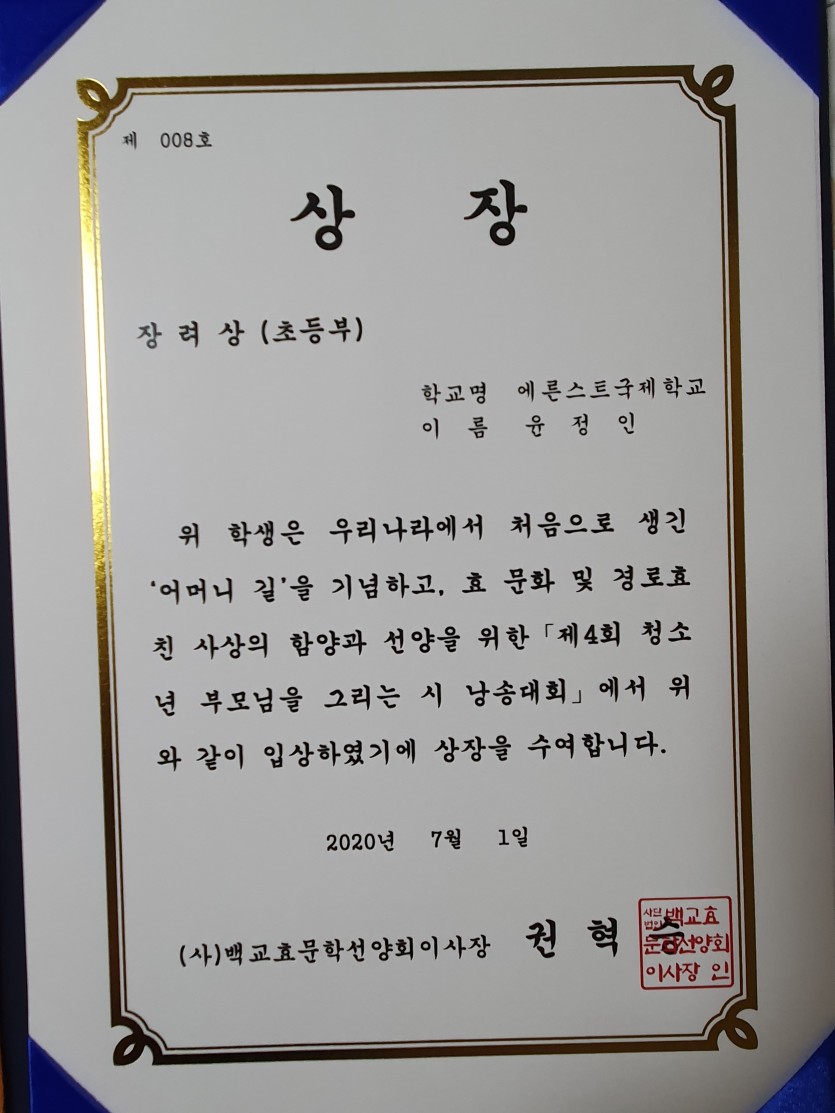 제 008호
상 장
장 려 상 (초등부)
학교명 에른스트국제학교
이 름 윤 정 인
위 학생은 우리나라에서 처음으로 생긴
'어머니 길'을 기념하고, 효 문화 및 경로효
친 사상의 함양과 선양을 위한 「제4회 청소
년 부모님을 그리는 시 낭송대회」에서 위
와 같이 입상하였기에 상장을 수여합니다.
2020년 7월 1일
(사)백교효문학선양회이사장 권 혁 승
사단법인 백교효
문학선양회
이사장 인